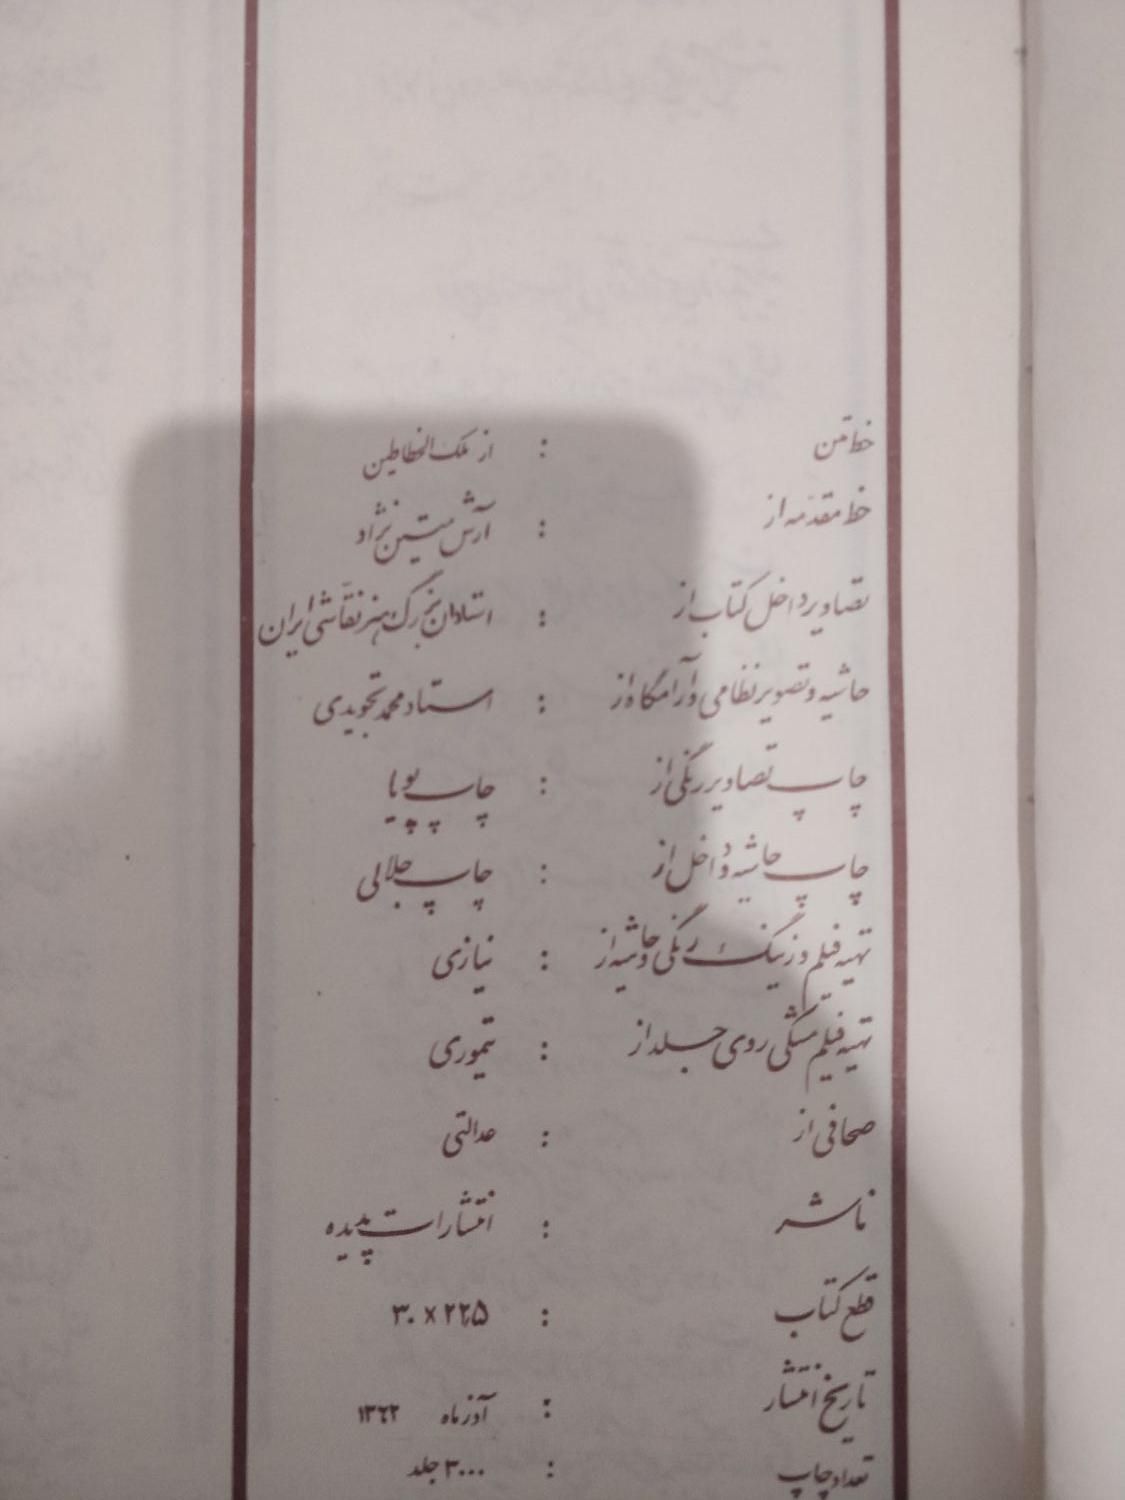 خط متن : از ملک الخطاطین
خط مقدمه از : آرش متین نژاد
تصاویر داخل کتاب از : استادان بزرگ هنر نقاشی ایران
حاشیه و تصویر نظامی و آرامگاه از : استاد محمد تجویدی
چاپ تصاویر رنگی از : چاپ پویا
چاپ حاشیه و داخل از : چاپ جلالی
تهیه فیلم و زینگ رنگی و حاشیه از : نیازی
تهیه فیلم مشکی روی جلد از : تیموری
صحافی از : عدالتی
ناشر : انتشارات پدیده
قطع کتاب : ۲۲٫۵ × ۳۰
تاریخ انتشار : آذرماه ۱۳۶۲
تعداد چاپ : ۳۰۰۰ جلد